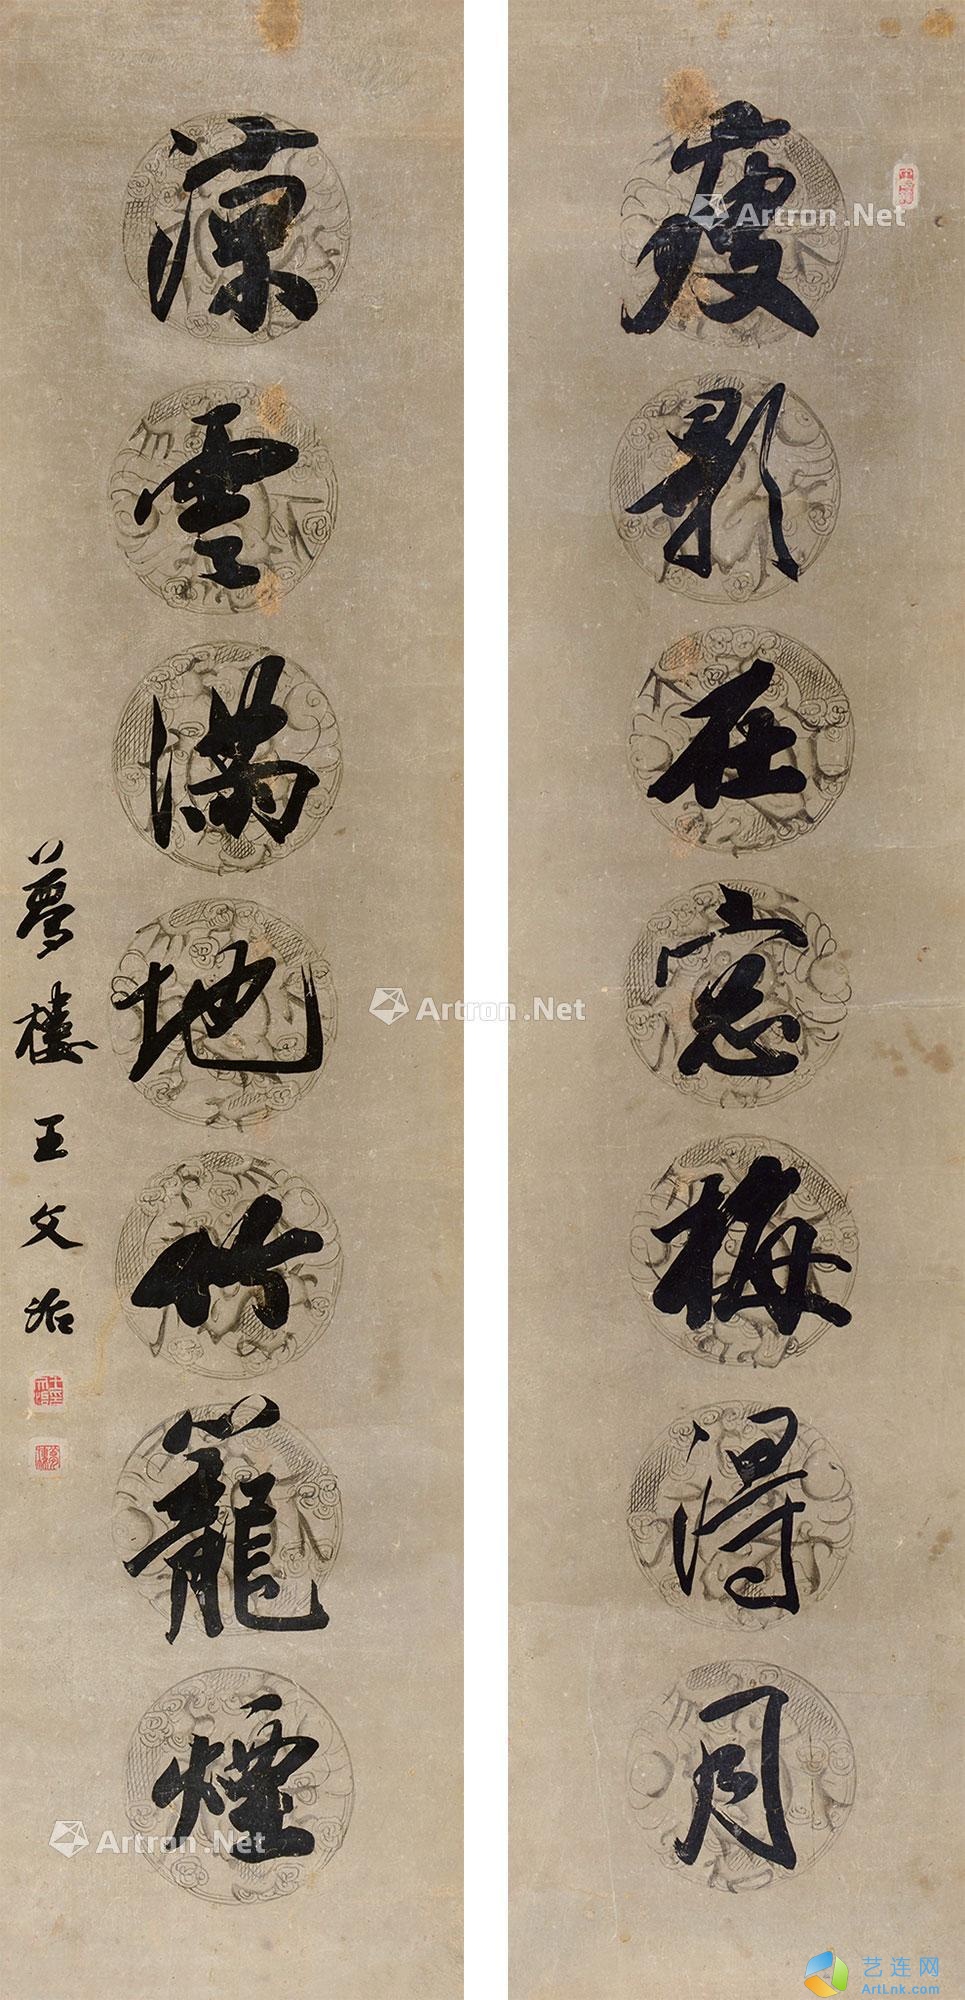 瘦影在窓梅得月
涼雲滿地竹籠煙
夢樓王文治
Artron.Net
Artron.Net
Artron.Net
艺连网
ArtLnk.com